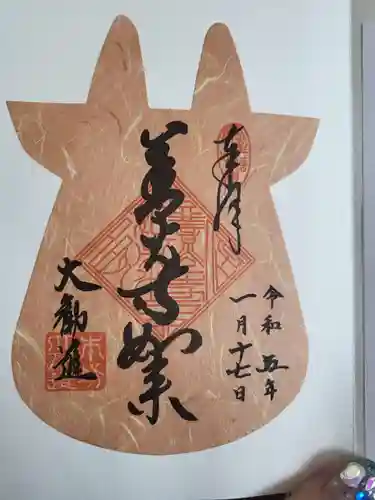 奉拝
令和五年
一月十七日
善光寺如来
大勧進